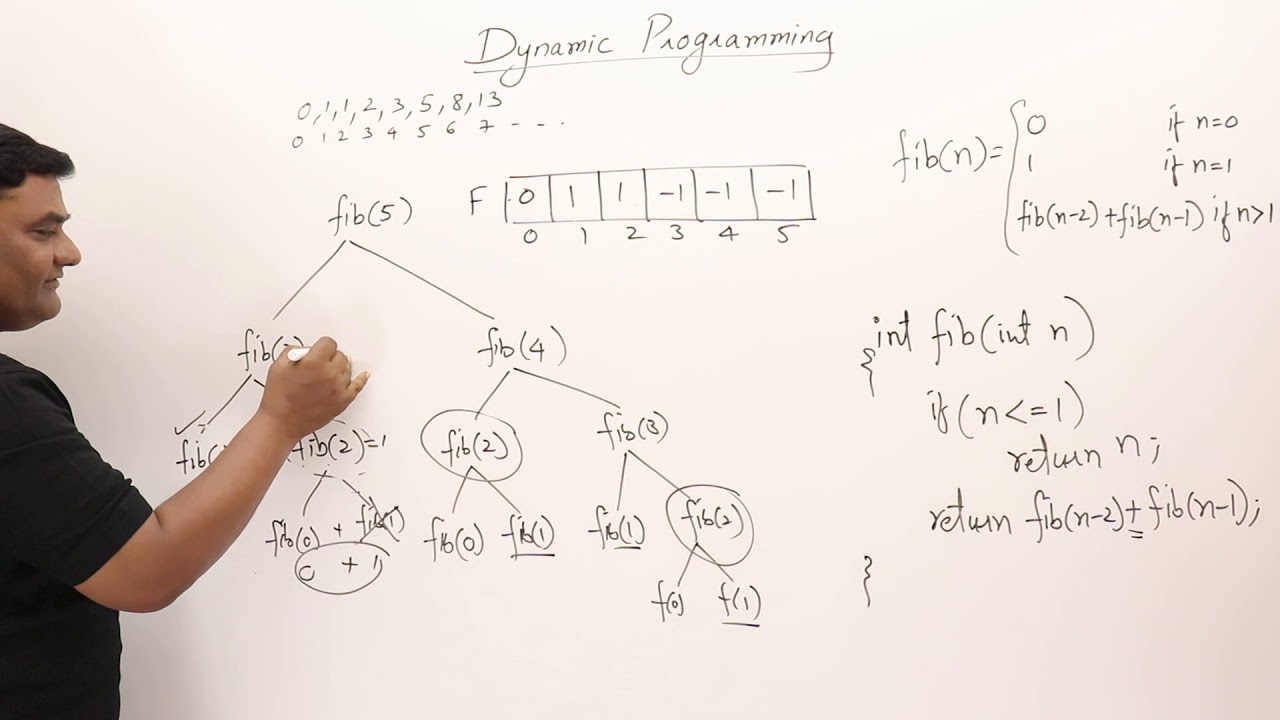 Dynamic Programming
0,1,1,2,3,5,8,13
0 1 2 3 4 5 6 7 - - .
fib(n)= { 0 if n=0
1 if n=1
fib(n-2)+fib(n-1) if n>1
F 0 1 1 -1 -1 -1
0 1 2 3 4 5
fib(5)
fib( fib(4)
fib( fib(2)=1 fib(2) fib(3)
fib(0) + fib(1) fib(0) fib(1) fib(1) fib(2)
0 + 1 f(0) f(1)
int fib(int n)
{
if(n<=1)
return n;
return fib(n-2)+fib(n-1);
}